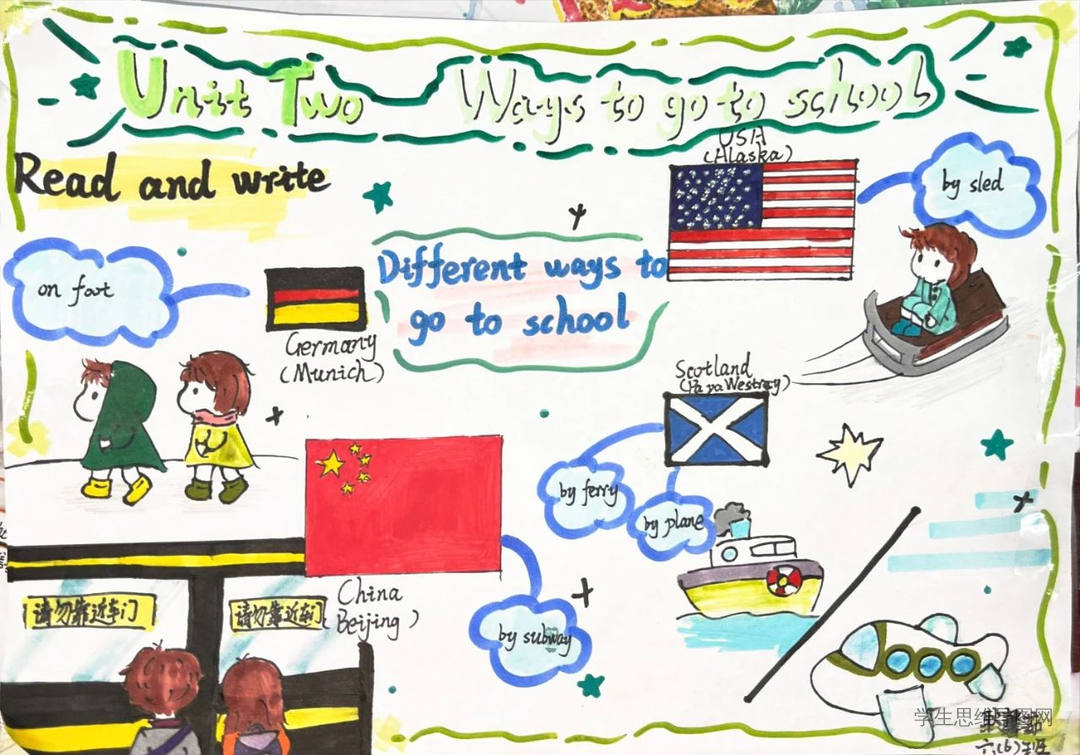 Unit Two Ways to go to school
Read and write
USA
(Alaska)
by sled
on foot
Different ways to
go to school
Germany
(Munich)
Scotland
(Papa Westray)
by ferry
by plane
China
(Beijing)
by subway
请勿靠近车门
请勿靠近车门
学生思维导图网
六(6)班